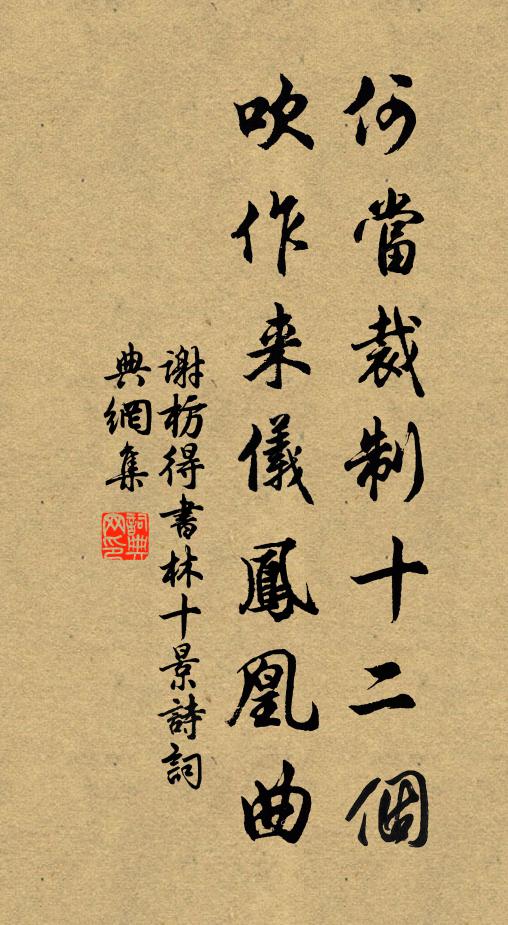 何當裁制十二個
吹作来儀鳳凰曲
谢枋得書林十景詩詞
典網集
詞典网印